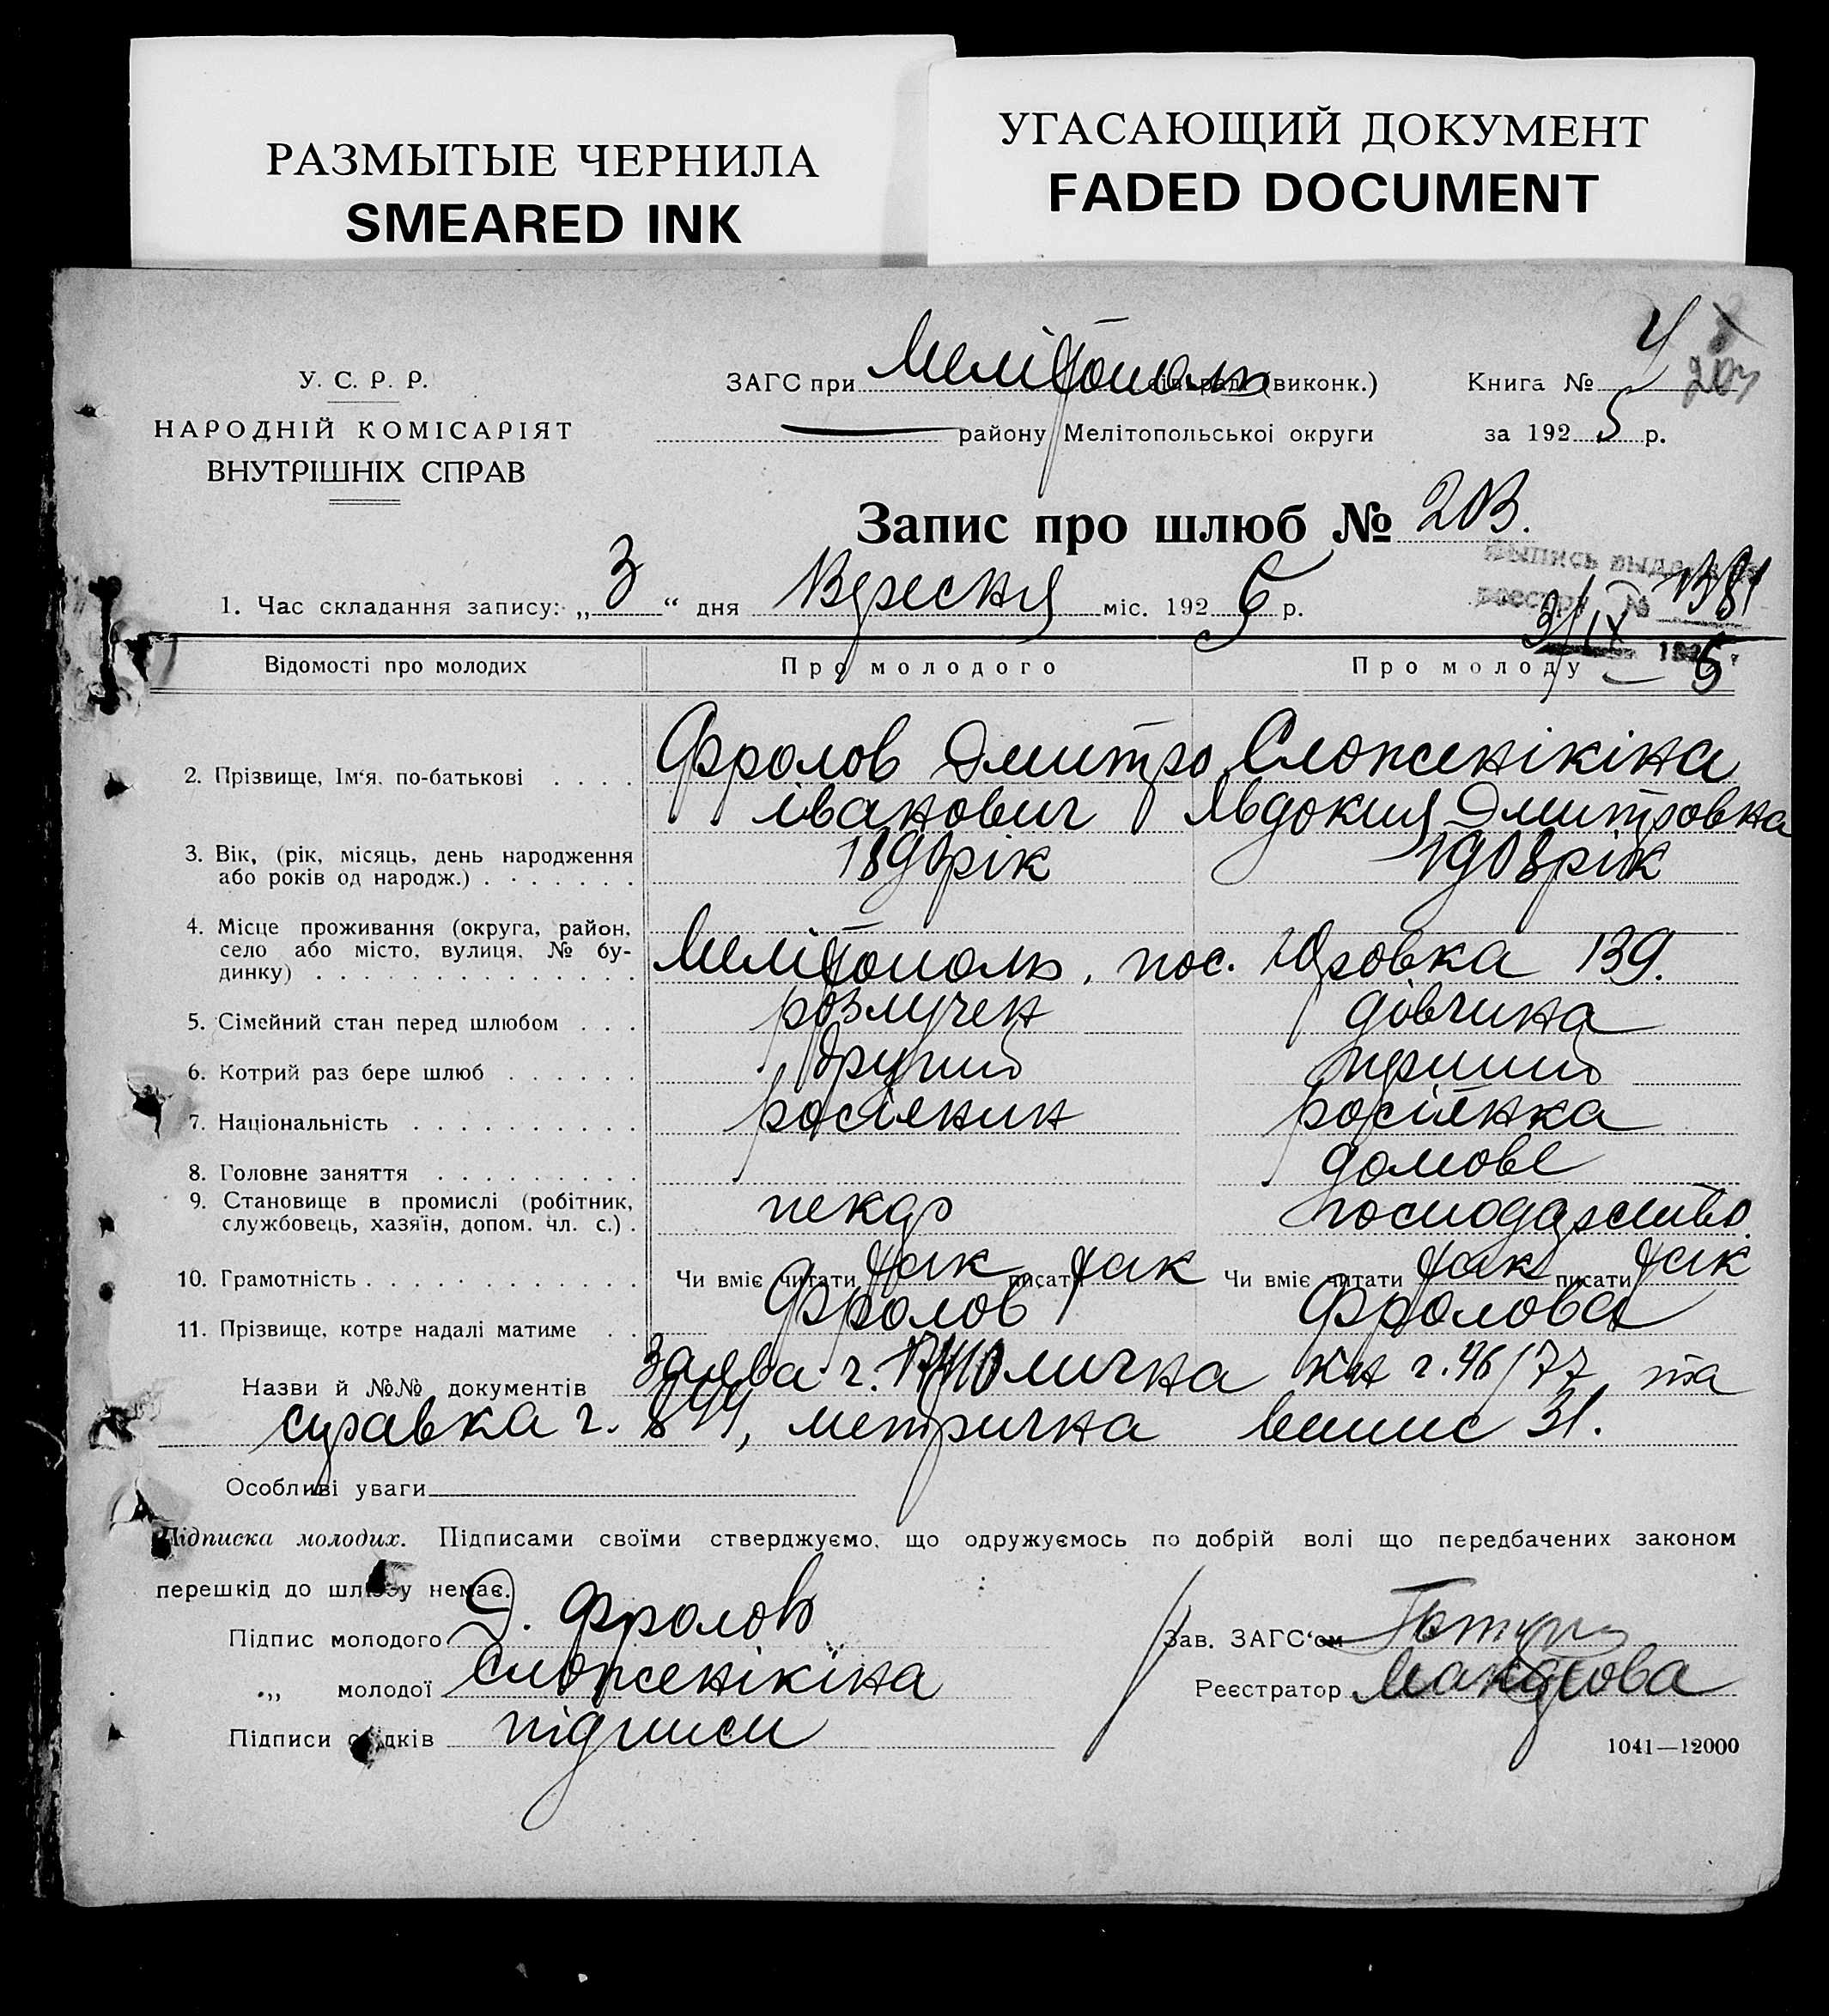 РАЗМЫТЫЕ ЧЕРНИЛА
SMEARED INK
УГАСАЮЩИЙ ДОКУМЕНТ
FADED DOCUMENT
У. С. Р. Р.
НАРОДНІЙ КОМІСАРІЯТ
ВНУТРІШНІХ СПРАВ
ЗАГС при Мелітополь (виконк.)
району Мелітопольської округи
Книга № 4
203
за 1925 р.
Запис про шлюб № 203.
Выпись выдана
реестр № 1381
3/IX 1925
1. Час складання запису: „3“ дня Вересня міс. 1925 р.
Відомості про молодих Про молодого Про молоду
2. Прізвище, Ім'я, по-батькові . . . . Фролов Дмитро Сложенікіна
іванович Явдокия Дмитровка
3. Вік, (рік, місяць, день народження
або років од народж.) . . . . . . 1890 рік 1908 рік
4. Місце проживання (округа, район,
село або місто, вулиця, № бу-
динку) . . . . . . . . . . . . . Мелітополь, пос. Юровка 139.
5. Сімейний стан перед шлюбом . . . розлучен дівчина
6. Котрий раз бере шлюб . . . . . . другий перший
7. Національність . . . . . . . . . . росіянин росіянка
8. Головне заняття . . . . . . . . . домове
9. Становище в промислі (робітник,
службовець, хазяїн, допом. чл. с.) . пекар господарство.
10. Грамотність . . . . . . . . . . . . Чи вміє читати так писати так Чи вміє читати так писати так
11. Прізвище, котре надалі матиме . . Фролов Фролова
Назви й №№ документів Заява ч. личка кн ч. 46/77 та
справка ч. 844, метрична випис 31.
Особливі уваги
Підписка молодих. Підписами своїми стверджуємо, що одружуємось по добрій волі що передбачених законом
перешкід до шлюбу немає.
Підпис молодого Д. Фролов
„ молодої Сложенікіна
Підписи свідків підписи
Зав. ЗАГС'ом
Реєстратор
1041—12000